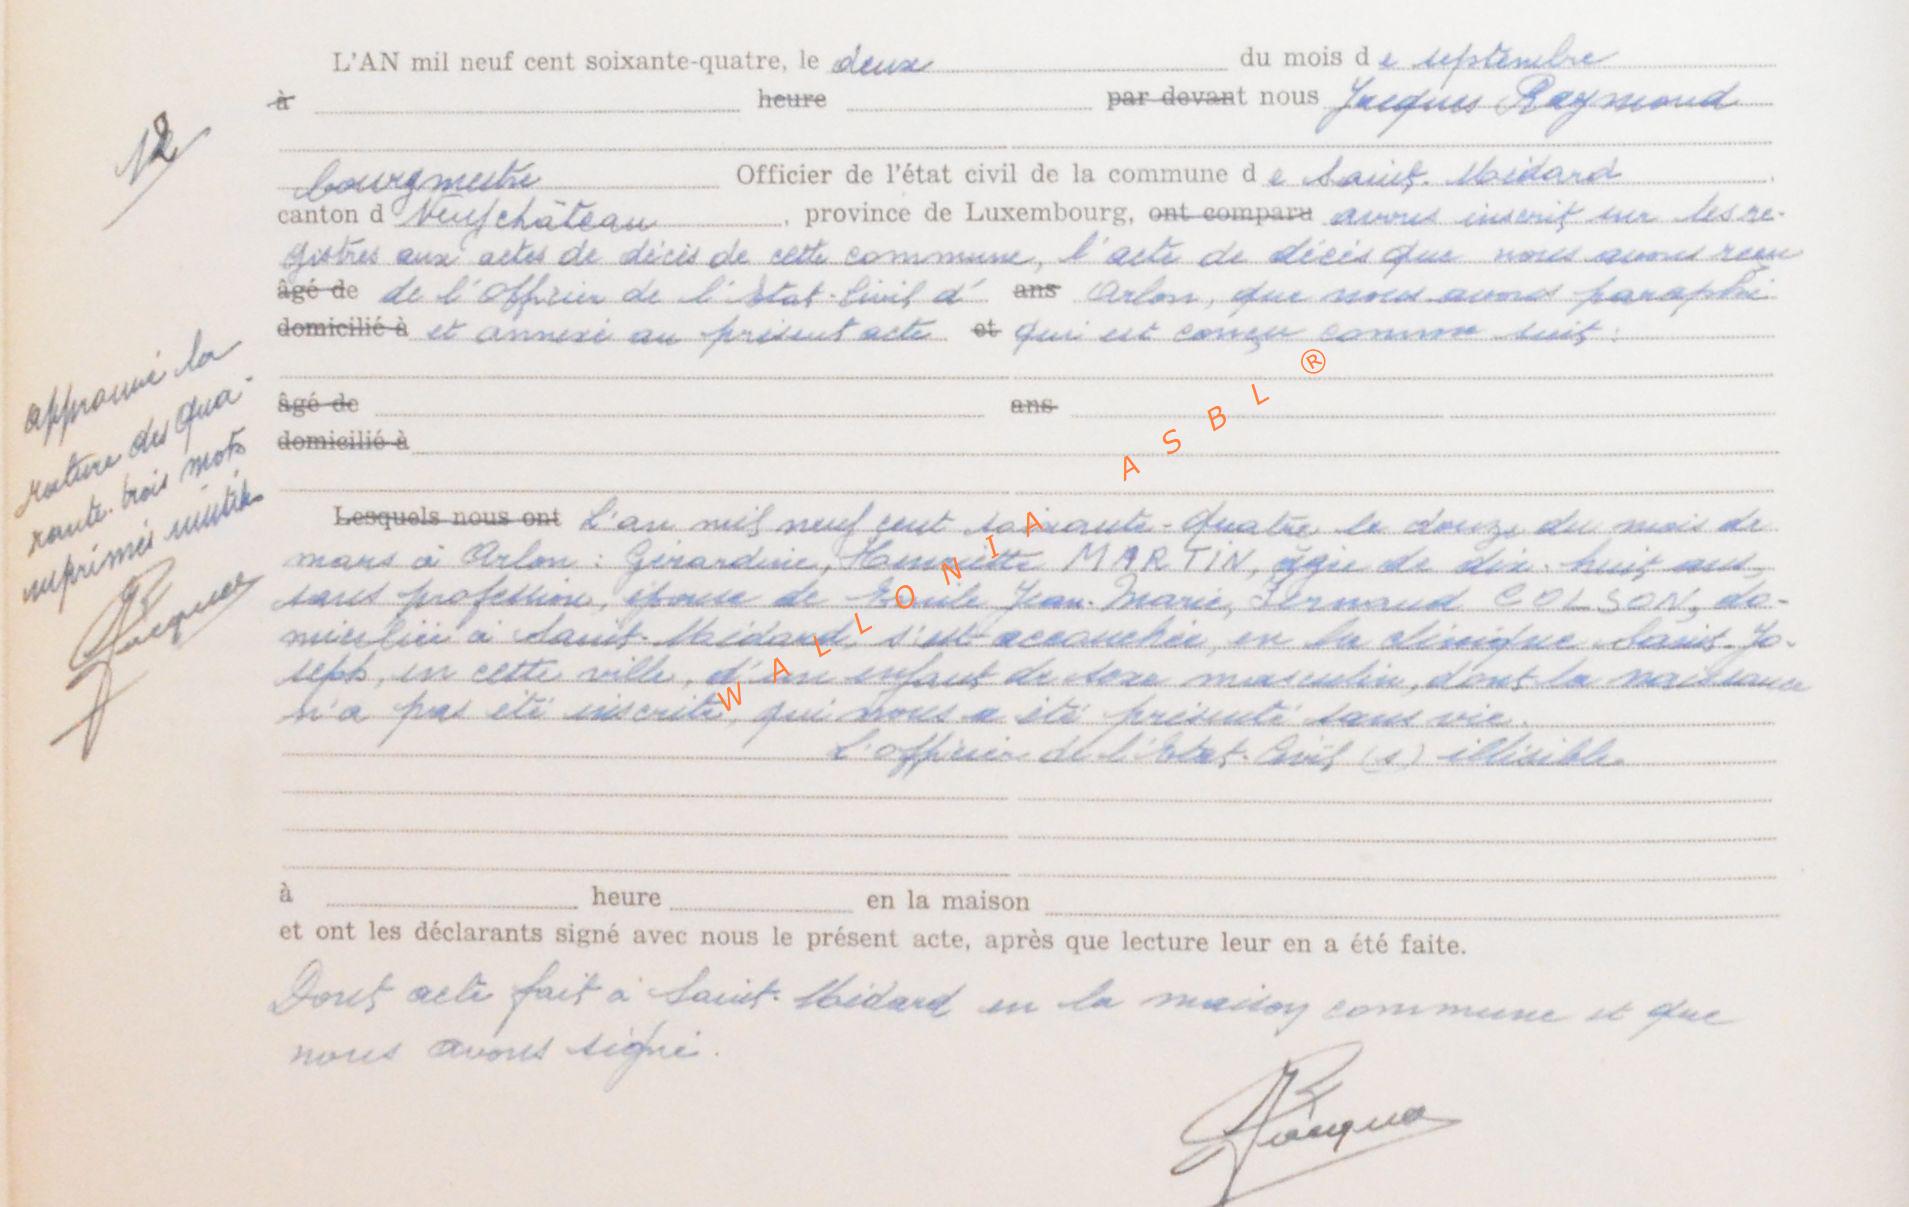 L'AN mil neuf cent soixante-quatre, le deux du mois de septembre
à heure par devant nous Jacques Raymond
12
bourgmestre Officier de l'état civil de la commune de Saint-Médard
canton d Neufchâteau, province de Luxembourg, ont comparu avons inscrit sur les re-
gistres aux actes de décès de cette commune, l'acte de décès que nous avons reçu
âgé de de l'Officier de l'Etat-Civil d' ans Arlon, que nous avons paraphé
domicilié à et annexé au présent acte et qui est conçu comme suit :
âgé de ans
domicilié à
approuvé la
rature des qua-
rante-trois mots
imprimés inutiles
R Jacques
Lesquels nous ont L'an mil neuf cent soixante-quatre le douze du mois de
mars à Arlon : Gérardine, Henriette MARTIN, âgée de dix-huit ans,
sans profession, épouse de Emile Jean-Marie, Fernand COLSON, do-
miciliée à Saint-Médard, s'est accouchée, en la clinique Saint-Jo-
seph, en cette ville, d'un enfant de sexe masculin, dont la naissance
n'a pas été inscrite, qui nous a été présenté sans vie.
L'officier de l'Etat-Civil (s) illisible.
à heure en la maison
et ont les déclarants signé avec nous le présent acte, après que lecture leur en a été faite.
Dont acte fait à Saint-Médard en la maison commune et que
nous avons signé.
R Jacques
WALLONIA ASBL ®